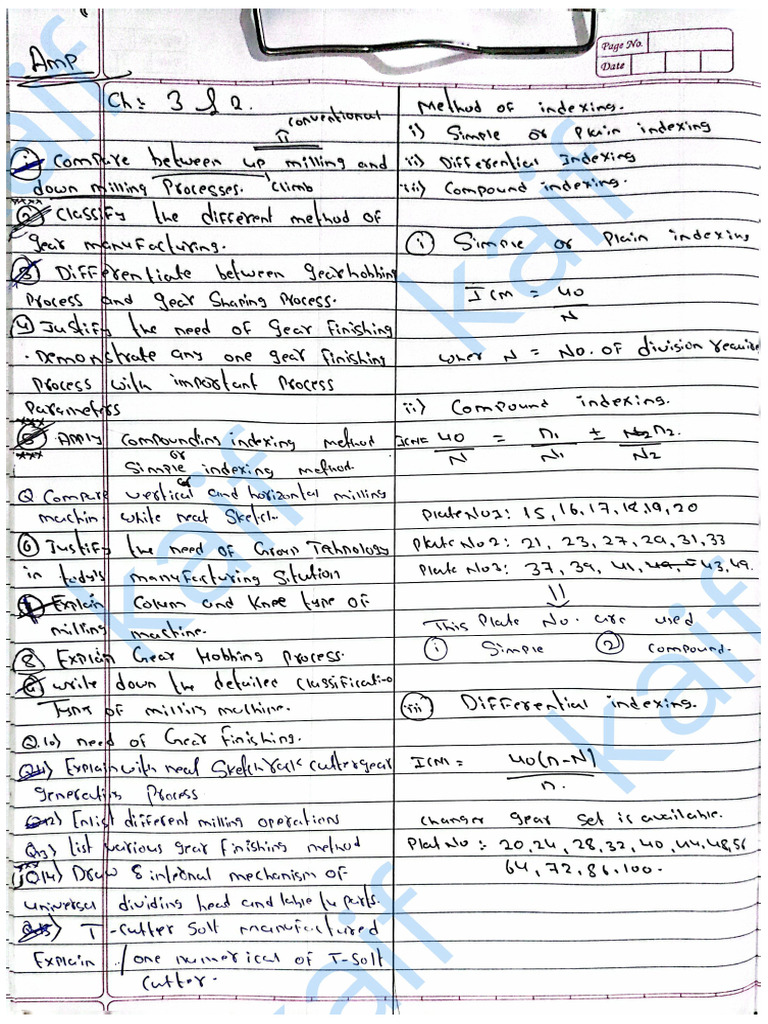 Page No.
Date
Amp
Ch: 3 & 2.
conventional
① Compare between up milling and
down milling Processes. climb
② Classify the different method of
gear manufacturing.
③ Differentiate between gear hobbing
Process and gear Shaping Process.
④ Justify the need of Gear finishing
. Demonstrate any one gear finishing
Process with important Process
Parameters
⑤ Apply Compounding indexing method
or
Simple indexing method.
or
Q Compare vertical and horizontal milling
machine while neat Sketch.
⑥ Justify the need of Group Technology
in today's manufacturing Sitution
Explain Column and Knee type of
milling machine.
⑧ Explain Gear Hobbing Process.
write down the detailed classificatio
Types of milling machine.
Q.10) need of Gear finishing.
Q11) Explain with neat Sketch rack cutter gear
generation Process
Q12) Enlist different milling operations
Q13) list various gear finishing method
Q14) Draw & internal mechanism of
universal dividing head and lable its parts.
Q15) T-cutter Solt manufactured
Explain / one numerical of T-Solt
Cutter.
Method of indexing.
i) Simple or Plain indexing
ii) Differential Indexing
iii) Compound indexing.
① Simple or Plain indexing
ICM = 40
N
wher N = No. of division require
ii) Compound indexing.
ICM = 40 = n1 ± n2.
N N1 N2
Plate No 1: 15, 16, 17, 18, 19, 20
Plate No 2: 21, 23, 27, 29, 31, 33
Plate No 3: 37, 39, 41, 43, 49.
This Plate No. are used
① Simple ② compound.
iii Differential indexing.
ICM = 40(n-N)
n.
changer gear set is available.
Plat No : 20, 24, 28, 32, 40, 44, 48, 56
64, 72, 86, 100.
kaif
kaif
kaif
kaif
kaif
kaif